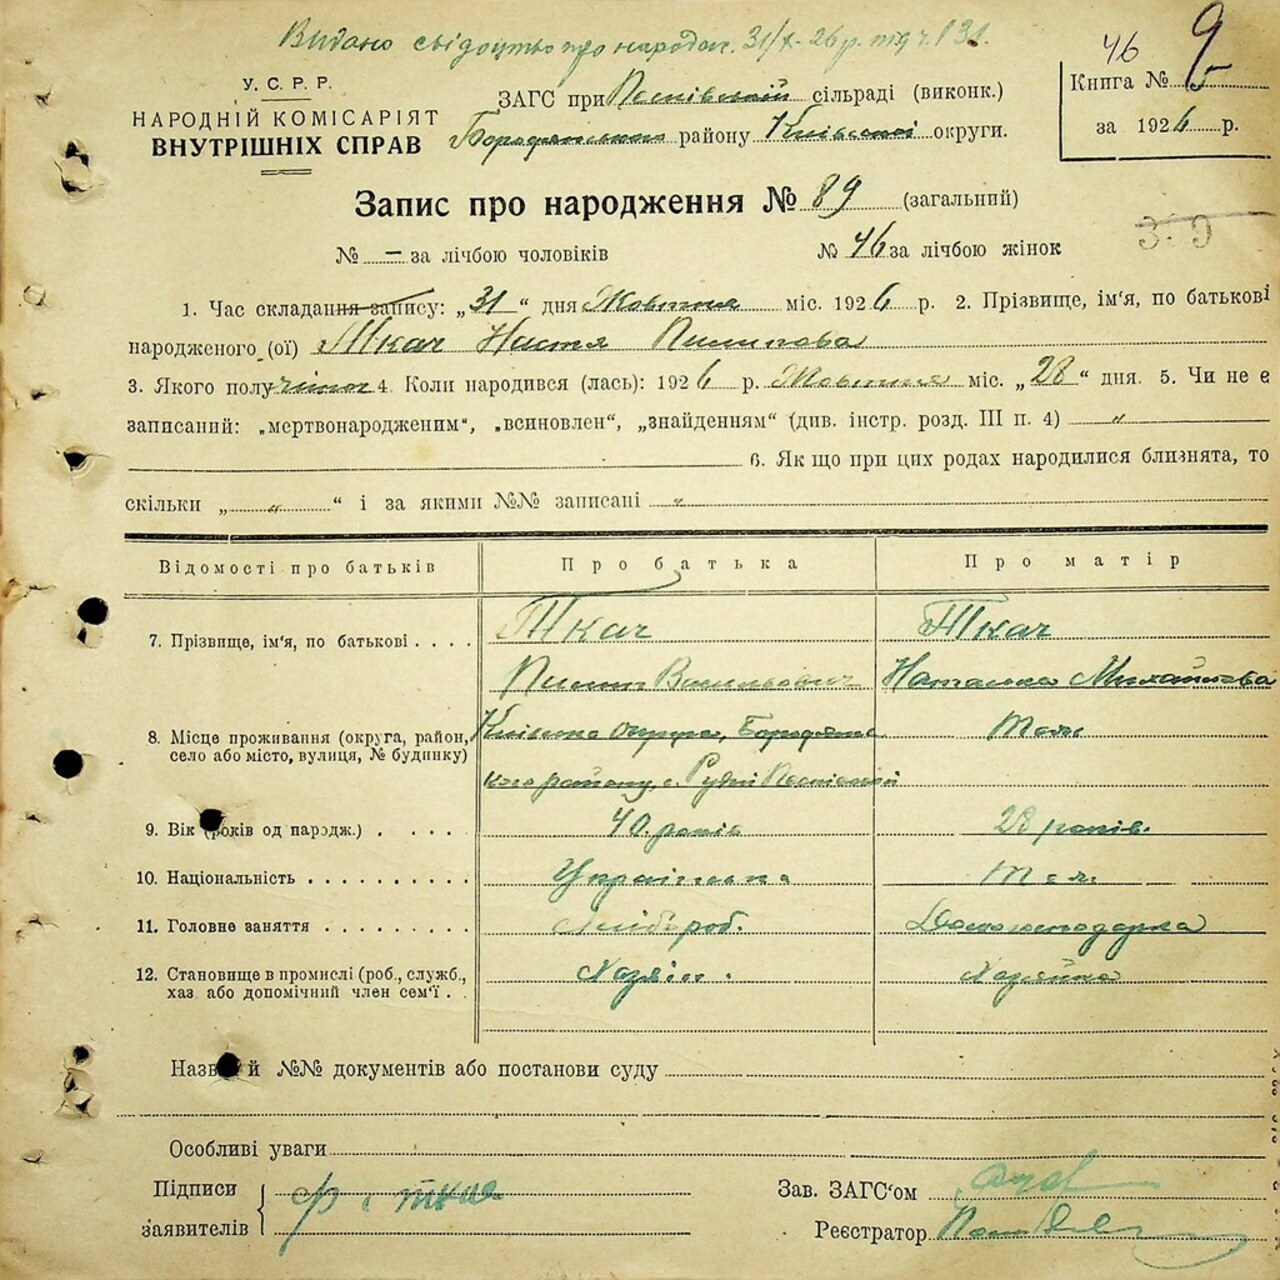 Видано свідоцтво про народж. 31/X-26 р. під ч. 131.
46 9
У. С. Р. Р.
НАРОДНІЙ КОМІСАРІЯТ
ВНУТРІШНІХ СПРАВ
ЗАГС при Пісківській сільраді (виконк.)
Бородянського району Київської округи.
Книга № 5
за 1926 р.
Запис про народження № 89 (загальний)
№ — за лічбою чоловіків № 46 за лічбою жінок
1. Час складання запису: „31“ дня Жовтня міс. 1926 р. 2. Прізвище, ім'я, по батькові
народженого (ої) Ткач Настя Пилипова
3. Якого полу жіноч 4. Коли народився (лась): 1926 р. Жовтня міс. „28“ дня. 5. Чи не є
записаний: „мертвонародженим“, „всиновлен“, „знайденням“ (див. інстр. розд. III п. 4) „
6. Якщо при цих родах народилися близнята, то
скільки „ „ “ і за якими №№ записані „
Відомості про батьків Про батька Про матір
7. Прізвище, ім'я, по батькові . . . . Ткач Ткач
Пилип Васильович Наталка Михайлова
8. Місце проживання (округа, район, село або місто, вулиця, № будинку) Київська округа, Бородянсь Теж
кого району, с. Рудні Пісківській
9. Вік (років од народж.) . . . . 40 років 28 років.
10. Національність . . . . . . . . . . Українська Теж
11. Головне заняття . . . . . . . . . роб. Домогосподарка
12. Становище в промислі (роб., служб., Хазяїн. Хазяйка
хаз. або допомічний член сем'ї . .
Назви й №№ документів або постанови суду
Особливі уваги
Підписи
заявителів
Ткач
Зав. ЗАГС'ом
Реєстратор